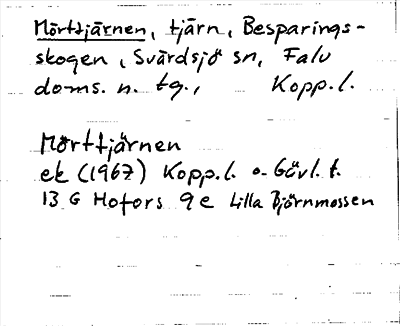 Mörttjärnen, tjärn, Besparings-
skogen, Svärdsjö sn, Falu
doms. n. tg., Kopp.l.
Mörttjärnen
ek (1967) Kopp.l. o. Gävl.t.
13 G Hofors 9e Lilla Björnmossen